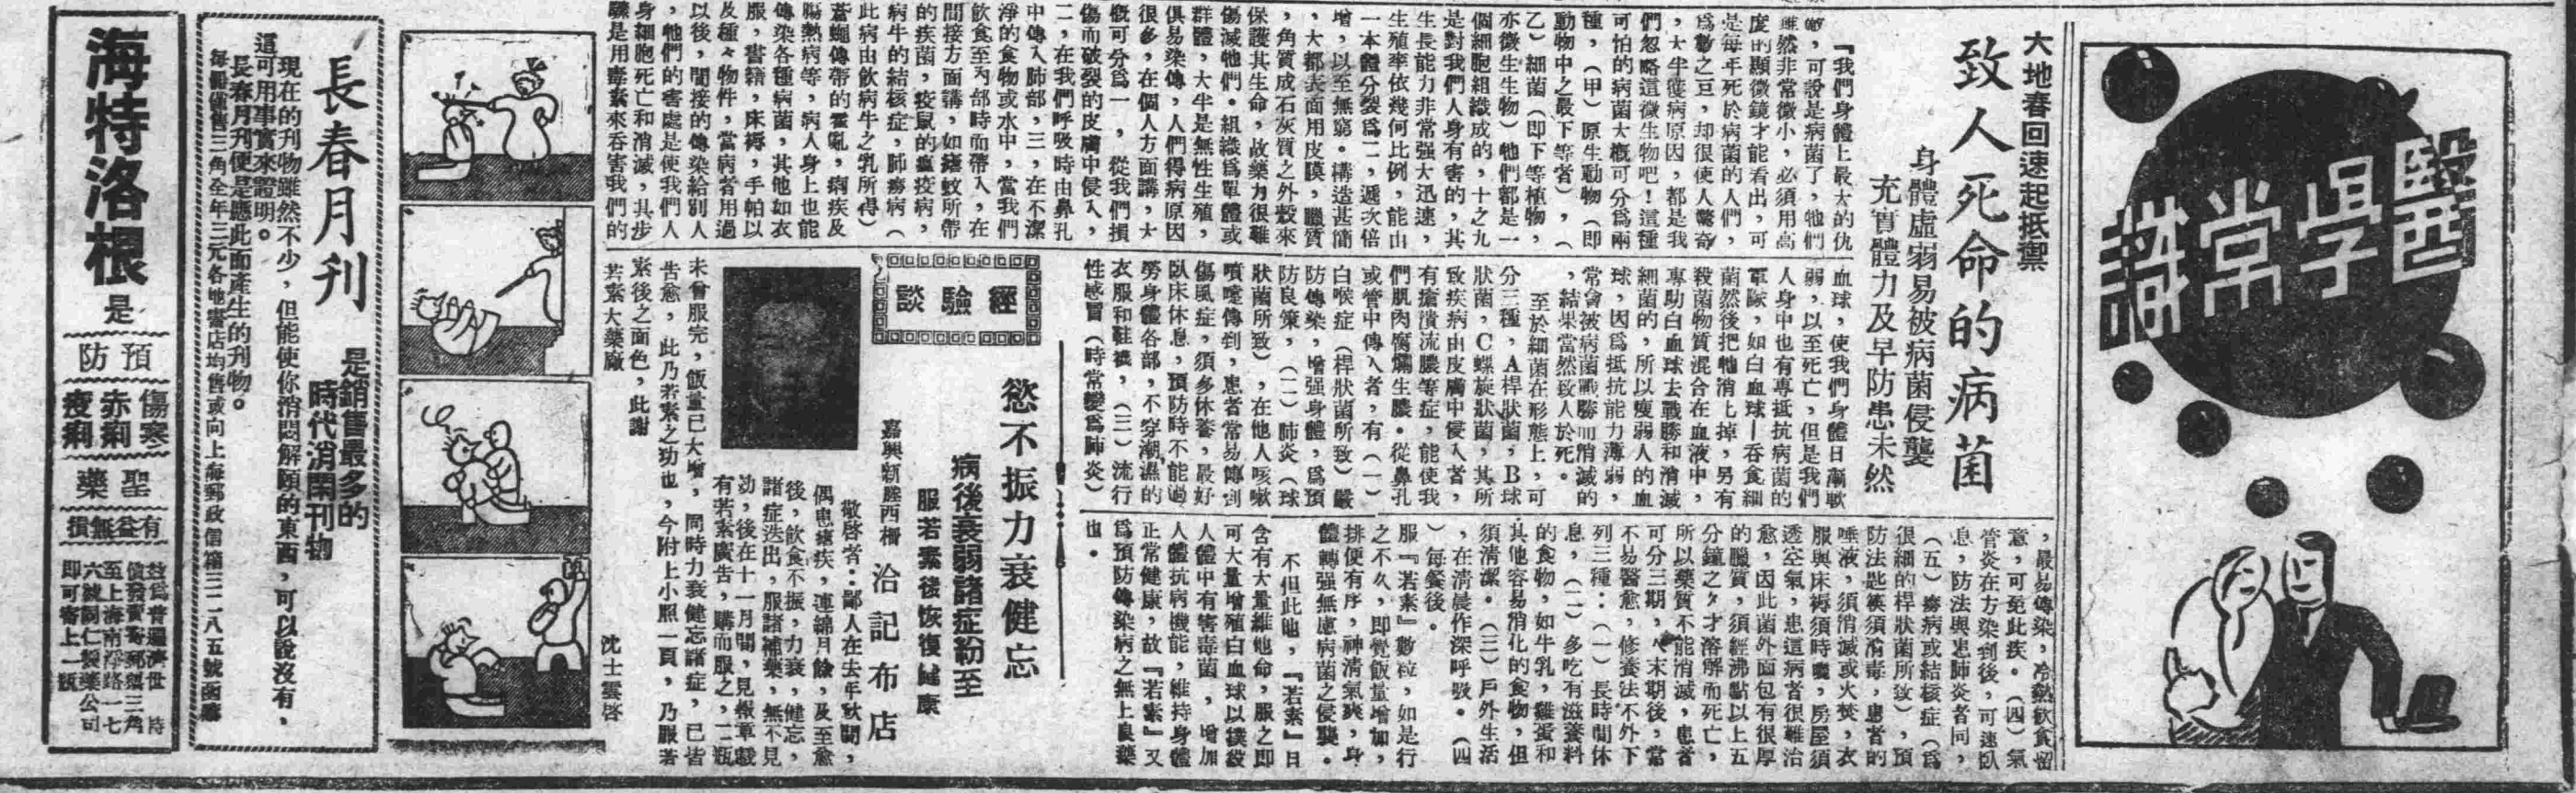 醫學常識
大地春回速起抵禦
致人死命的病菌
身體虛弱易被病菌侵襲
充實體力及早防患未然
『我們身體上最大的仇
敵,可說是病菌了,牠們
雖然非常微小,必須用高
度的顯微鏡才能看出,可
是每年死於病菌的人們,
爲數之巨,却很使人驚奇
,大半獲病原因,都是我
們忽略這微生物吧!這種
可怕的病菌大概可分爲兩
種,(甲)原生動物(即
動物中之最下等者),(
乙)細菌(即下等植物,
亦微生生物)牠們都是一
個細胞組織成的,十之九
是對我們人身有害的,其
生長能力非常强大迅速,
生殖率依幾何比例,能由
一本體分裂爲二,遞次倍
增,以至無窮。構造甚簡
,大都表面用皮膜,臘質
,角質成石灰質之外殼來
保護其生命,故藥力很難
傷滅牠們。組織爲單體或
群體,大半是無性生殖,
俱易染傳,人們得病原因
很多,在個人方面講,大
概可分爲一,從我們損
傷而破裂的皮膚中侵入,
二,在我們呼吸時由鼻孔
中傳入肺部,三,在不潔
淨的食物或水中,當我們
飲食至內部時而帶入,在
間接方面講,如瘧蚊所帶
的疾菌,疫鼠的瘟疫病,
病牛的結核症,肺癆病(
此病由飲病牛之乳所得)
蒼蠅傳帶的霍亂,痢疾及
腸熱病等,病人身上也能
傳染各種病菌,其他如衣
服,書籍,床褥,手帕以
及種々物件,當病者用過
以後,間接的傳染給別人
,牠們的害處是使我們人
身細胞死亡和消滅,其步
驟是用毒素來吞害我們的
血球,使我們身體日漸軟
弱,以至死亡,但是我們
人身中也有專抵抗病菌的
軍隊,如白血球—吞食細
菌然後把牠消上掉,另有
殺菌物質混合在血液中,
專助白血球去戰勝和消滅
細菌的,所以瘦弱人的血
球,因爲抵抗能力薄弱,
常會被病菌戰勝而消滅的
,結果當然致人於死。
至於細菌在形態上,可
分三種,A桿狀菌,B球
狀菌,C螺旋狀菌,其所
致疾病由皮膚中侵入者,
有瘡潰流膿等症,能使我
們肌肉腐爛生膿。從鼻孔
或管中傳入者,有(一)
白喉症(桿狀菌所致)嚴
防傳染,增强身體,爲預
防良策,(二)肺炎(球
狀菌所致),在他人咳嗽
噴嚏傳到,患者常易傳到
傷風症,須多休養,最好
臥床休息,預防時不能過
勞身體各部,不穿潮濕的
衣服和鞋襪,(三)流行
性感冒(時常變爲肺炎)
,最易傳染,冷熱飲食留
意,可免此疾。(四)氣
管炎在方染到後,可速臥
息,防法與患肺炎者同,
(五)癆病或結核症(爲
很細的桿狀菌所致),預
防法匙筷須消毒,患者的
唾液,須消滅或火焚,衣
服與床褥須時曬,房屋須
透空氣,患這病者很難治
愈,因此菌外面包有很厚
的臘質,須經沸點以上五
分鐘之々才溶解而死亡,
所以藥質不能消滅,患者
可分三期,々末期後,當
不易醫愈,修養法不外下
列三種:(一)長時間休
息,(二)多吃有滋養料
的食物,如牛乳,雞蛋和
其他容易消化的食物,但
須清潔。(三)戶外生活
,在清晨作深呼吸。(四
)每餐後。
服『若素』數粒,如是行
之不久,即覺飯量增加,
排便有序,神清氣爽,身
體轉强無慮病菌之侵襲。
不但此也,『若素』日
含有大量維他命,服之即
可大量增殖白血球以撲殺
人體中有害毒菌,增加
人體抗病機能,維持身體
正常健康,故『若素』又
爲預防傳染病之無上良藥
也。
經驗談
慾不振力衰健忘
病後衰弱諸症紛至
服若素後恢復健康
嘉興新塍西柵 洽記布店
敬啓者:鄙人在去年秋間,
偶患瘧疾,連綿月餘,及至愈
後,飲食不振,力衰,健忘,
諸症迭出,服諸補藥,無不見
効,後在十一月間,見報章載
有若素廣告,購而服之,一瓶
未曾服完,飯量已大增,同時力衰健忘諸症,已皆
告愈,此乃若素之功也,今附上小照一頁,乃服若
素後之面色,此謝
若素大藥廠
沈士雲啓
長春月刊
是銷售最多的
時代消閑刊物
現在的刊物雖然不少,但能使你消悶解頤的東西,可以說沒有,
這可用事實來證明。
長春月刊便是應此面產生的刊物。
每冊僅售三角全年三元各地書店均售或向上海郵政信箱三二八五號函購
海特洛根是
預防
傷寒
赤痢
疫痢
聖藥
有益無損
茲爲普遍濟世時
至上海南潯路一七
六號同仁製藥公司
即可寄上一瓶